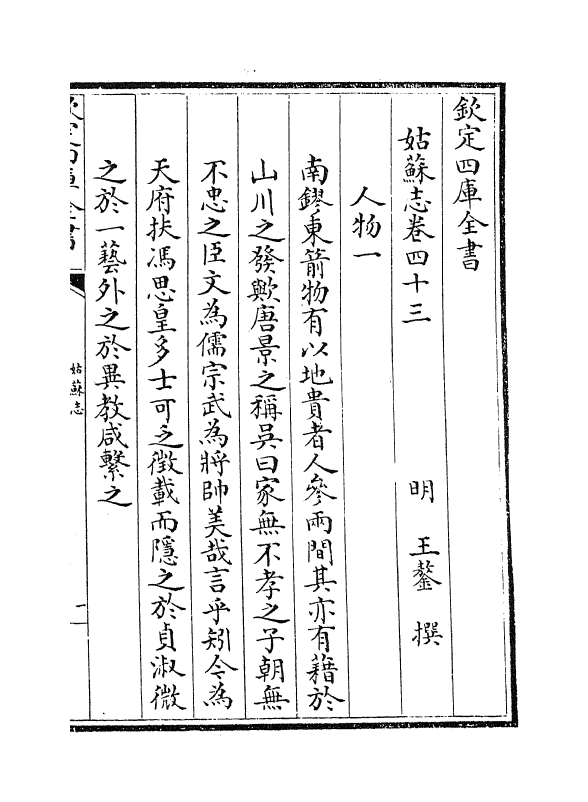 欽定四庫全書
姑蘇志卷四十三
明 王鏊 撰
人物一
南鏐東箭物有以地貴者人參兩間其亦有藉於
山川之發歟唐景之稱吳曰家無不孝之子朝無
不忠之臣文為儒宗武為將帥美哉言乎矧今為
天府扶馮思皇多士可乏徵載而隱之於貞淑微
之於一藝外之於異教咸繫之
欽定四庫全書
姑蘇志
一